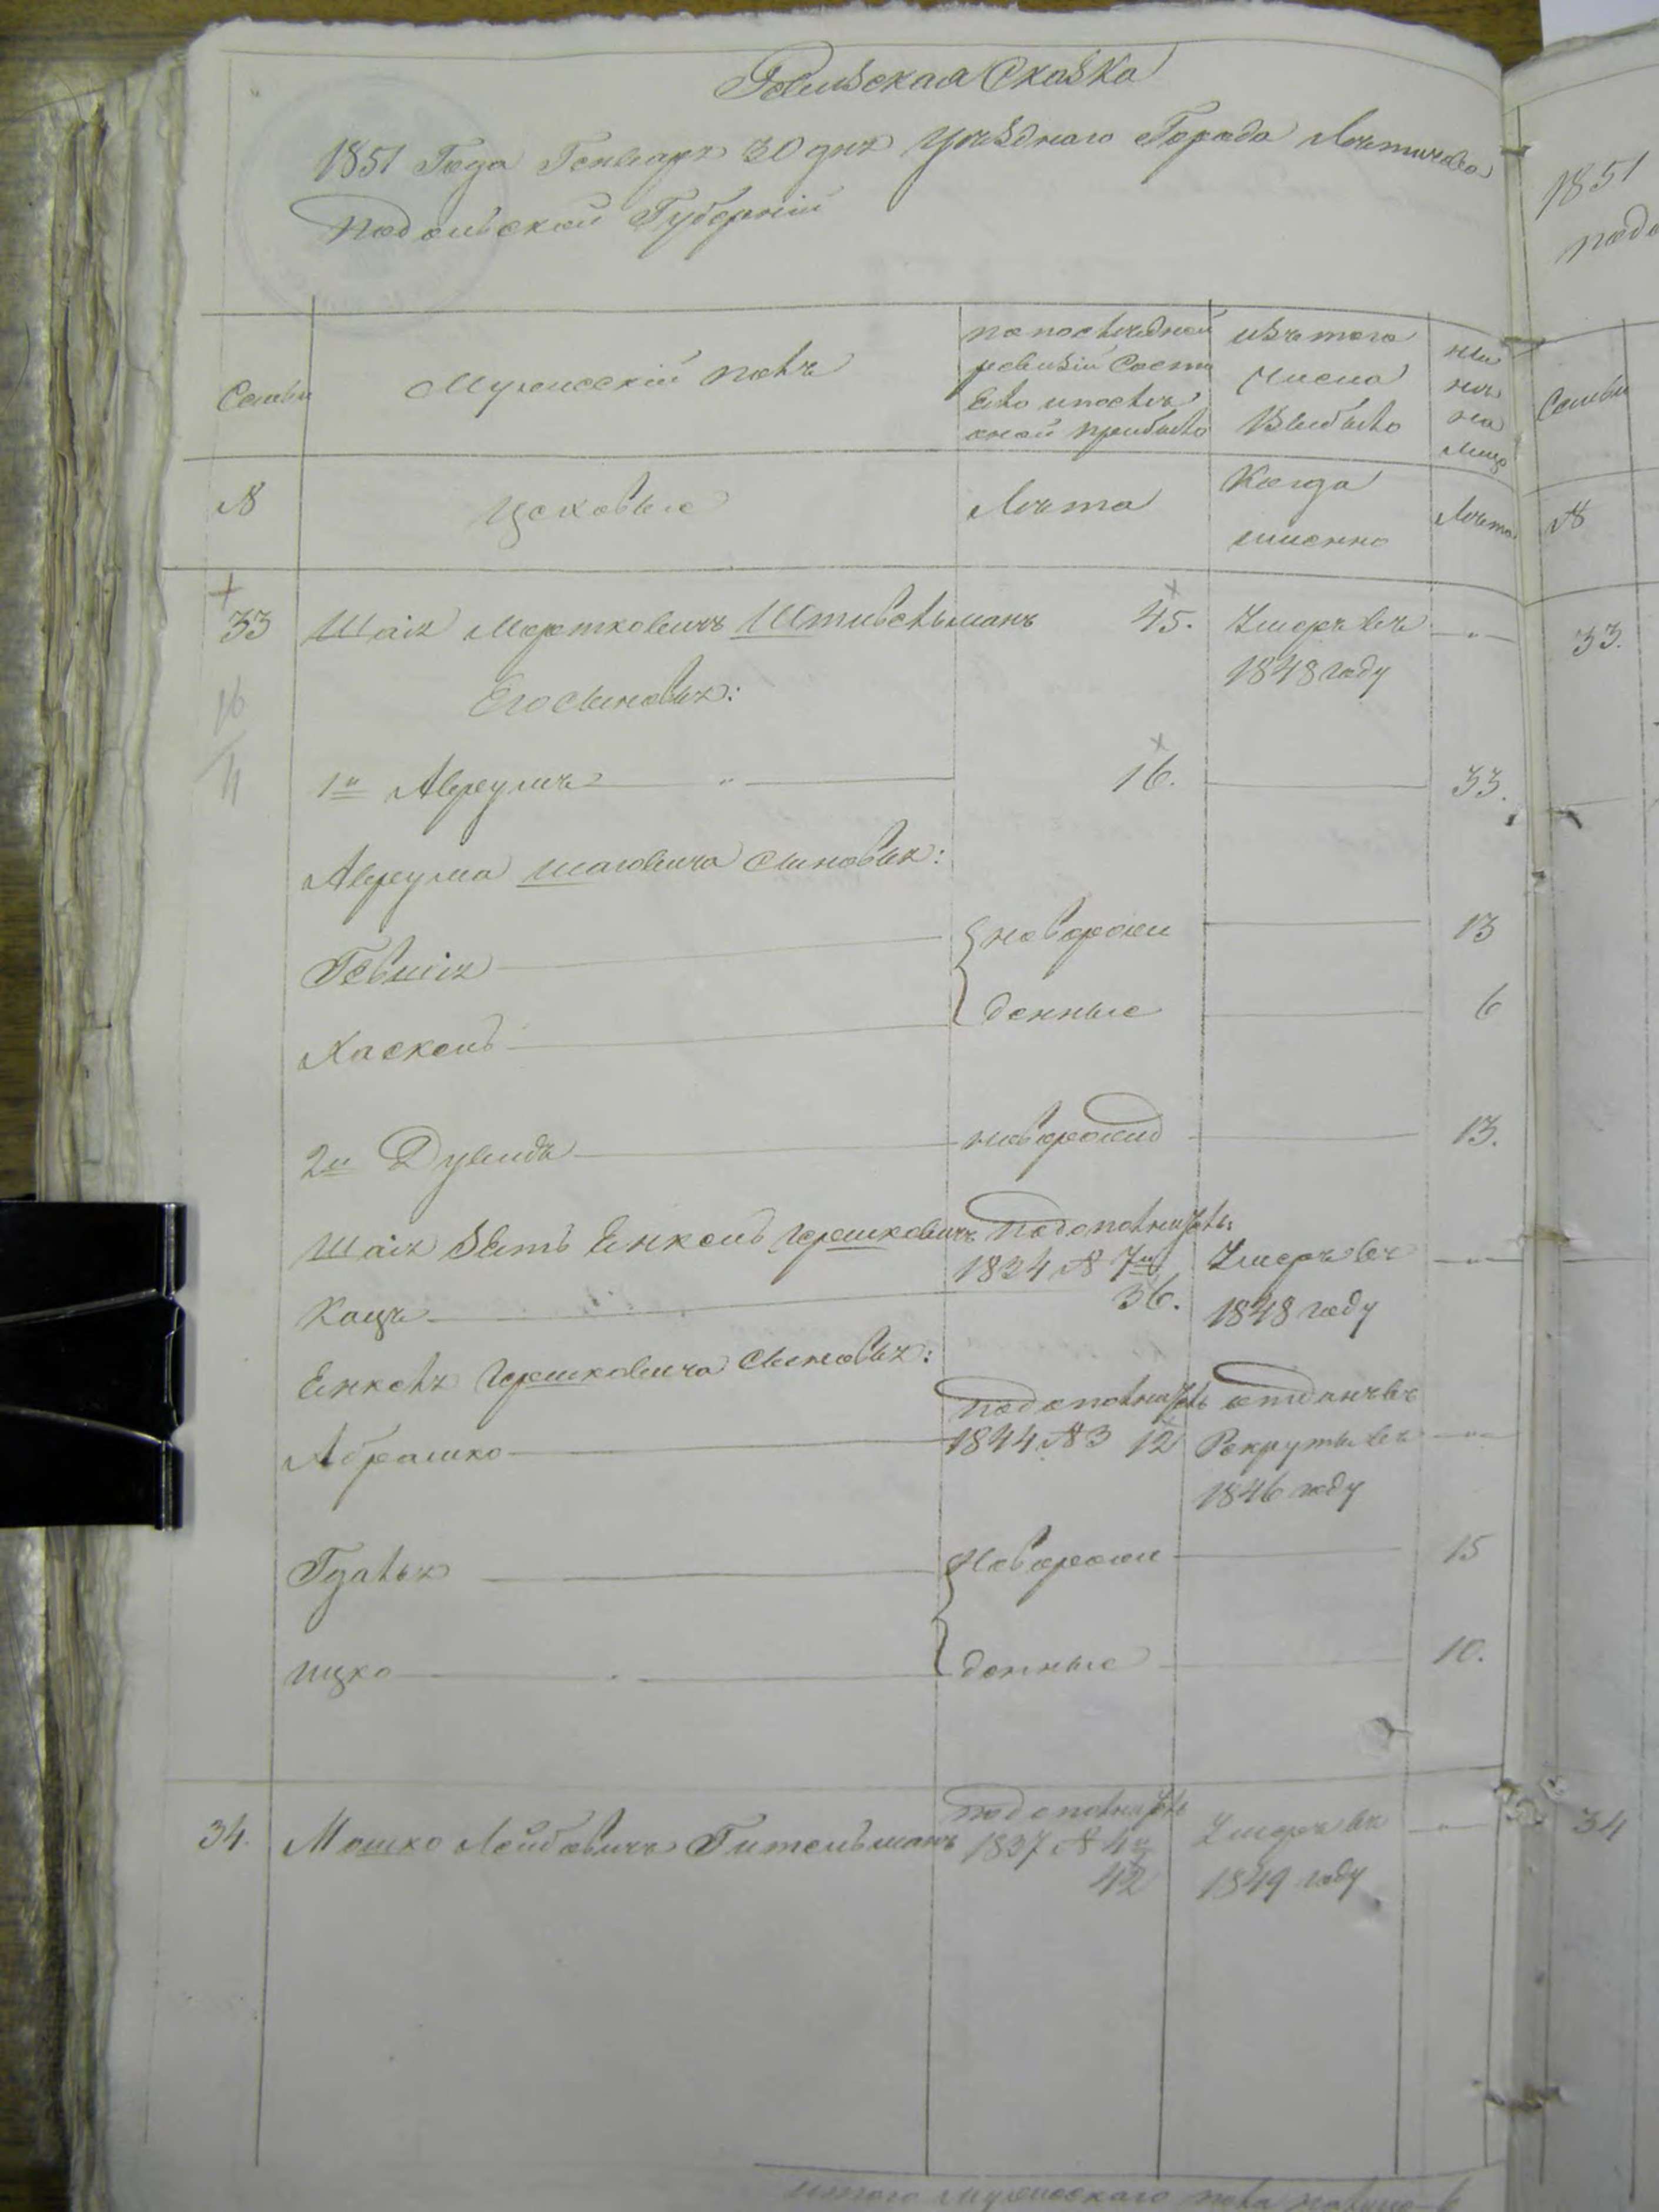 Ревизская Сказка
1851 Года Генваря 30 дня Уѣзднаго Города Летичева
Подольской Губерніи
Семьи
Мужескій полъ
По последней
ревизіи Состо
яло и после
оной прибыло
Изъ того
Числа
Выбыло
Ны
не
на
лицо
№
Цеховые
Лѣта
Когда
именно
Лѣта
33
Шаія Мортковичъ Штивельманъ
45.
Умеръ въ
1848 году
Его сыновья:
16
11
1й Авруумъ
16.
33.
Авруума Шаіовича сыновья:
Гевшія
новорож
13
Хаскель
денные
6
2й Дувидъ
новорожд
13.
Шаія Зять Енкель Гершковичъ
по дополнит:
1834 № 7й
36.
Умеръ въ
Кацъ
1848 году
Енкеля Гершковича сыновья:
Абрамко
по дополнит
1844 № 3 12
отданъ въ
Рекруты въ
1846 году
Гдалья
Новорож
15
Ицко
денные
10.
34.
Мошко Лейбовичъ Гительманъ
по дополнит
1837 № 4й
42
Умеръ въ
1849 году
итого мужескаго пола налицо
1851
Подо
Семьи
№
33.
34